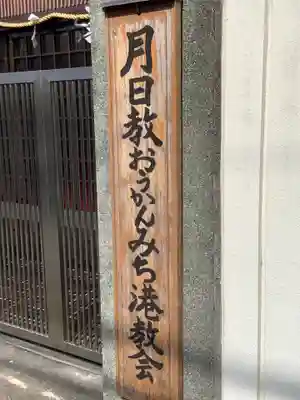 月日教おうかんみち港教会